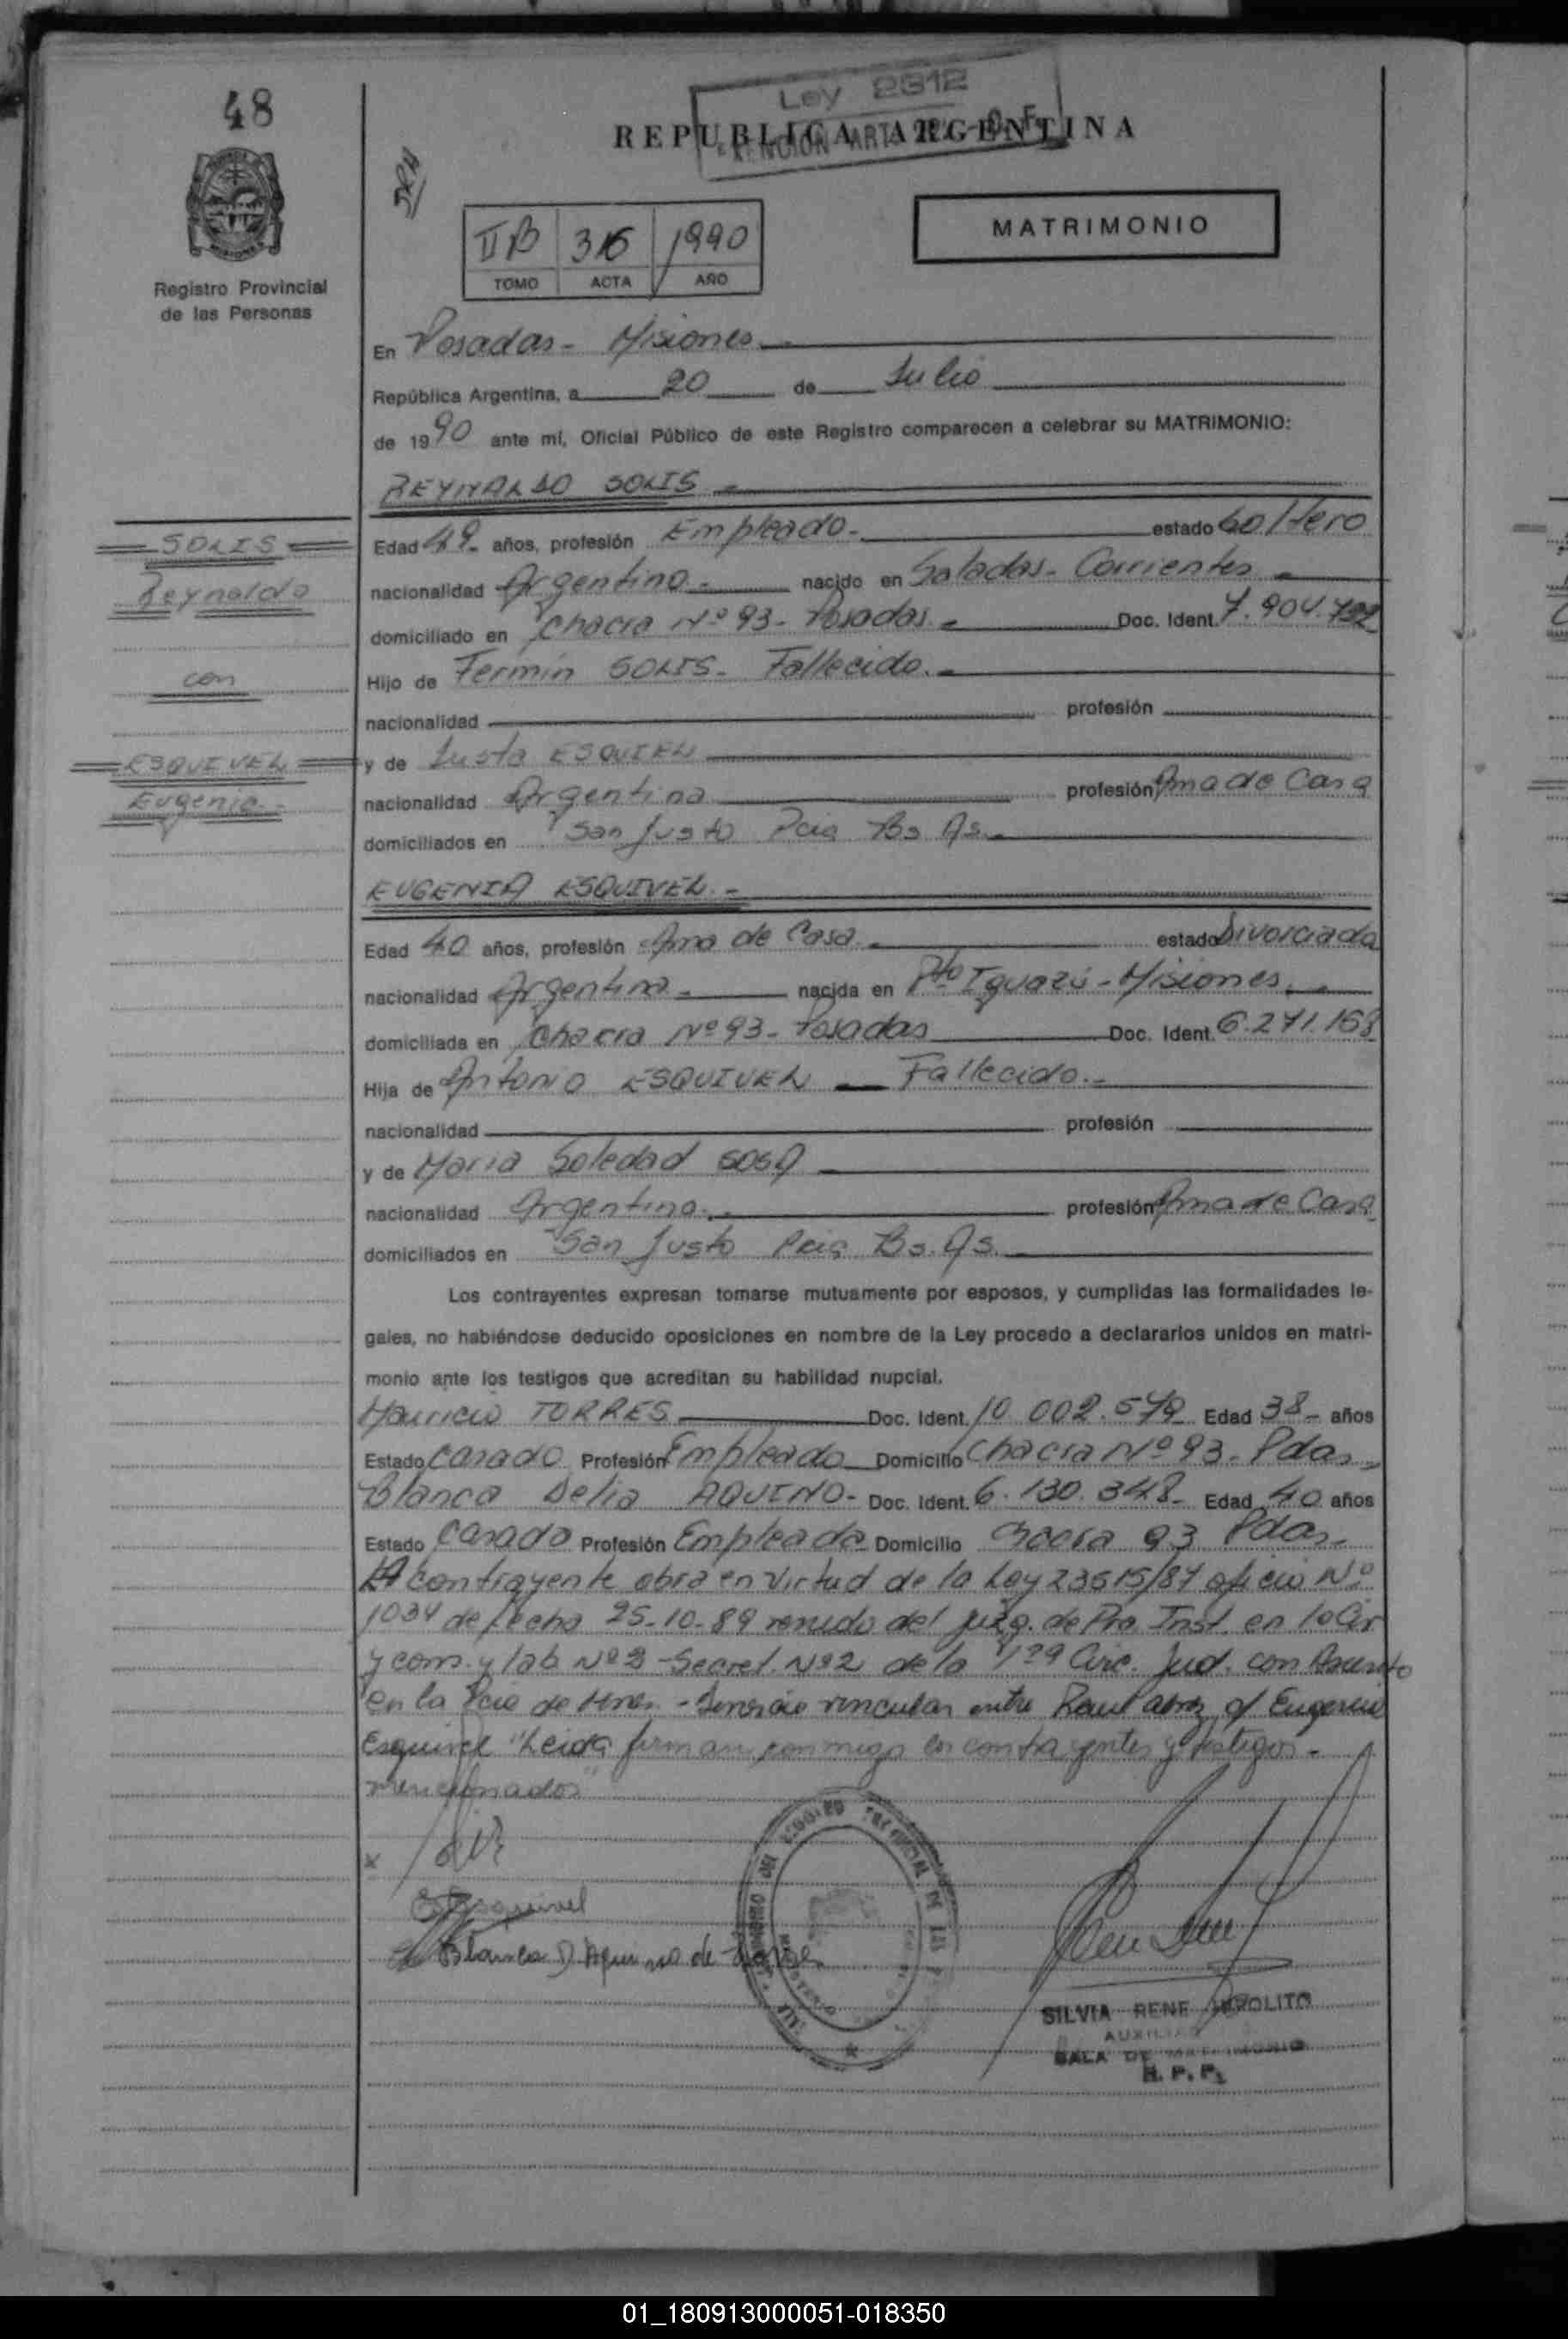 48
Ley 2312
REPUBLICA ARGENTINA
MATRIMONIO
II B 316 1990
TOMO ACTA AÑO
Registro Provincial
de las Personas
En Posadas - Misiones
República Argentina, a 20 de Julio
de 1990 ante mí, Oficial Público de este Registro comparecen a celebrar su MATRIMONIO:
REYNALDO SOLIS -
SOLIS
Reynaldo
con
ESQUIVEL
Eugenia -
Edad 49 - años, profesión Empleado - estado Soltero
nacionalidad Argentino - nacido en Saladas - Corrientes -
domiciliado en Chacra Nº 93 - Posadas - Doc. Ident. 7.904.792
Hijo de Fermín SOLIS - Fallecido. -
nacionalidad profesión
y de Justa ESQUIEL
nacionalidad Argentina profesión Ama de Casa
domiciliados en San Justo Pcia Bs As -
EUGENIA ESQUIVEL. -
Edad 40 años, profesión Ama de Casa - estado Divorciada
nacionalidad Argentina - nacida en Pto Iguazú - Misiones. -
domiciliada en Chacra Nº 93 - Posadas Doc. Ident. 6.271.163
Hija de Antonio ESQUIVEL - Fallecido. -
nacionalidad profesión
y de María Soledad SOSA
nacionalidad Argentina. - profesión Ama de Casa
domiciliados en San Justo Pcia Bs. As.
Los contrayentes expresan tomarse mutuamente por esposos, y cumplidas las formalidades le-
gales, no habiéndose deducido oposiciones en nombre de la Ley procedo a declararlos unidos en matri-
monio ante los testigos que acreditan su habilidad nupcial.
Mauricio TORRES Doc. Ident. 10.002.579 Edad 38 - años
Estado Casado Profesión Empleado Domicilio Chacra Nº 93 - Pdas -
Blanca Delia AQUINO - Doc. Ident. 6.130.348 - Edad 40 años
Estado Casada Profesión Empleada Domicilio Chacra 93 Pdas -
La contrayente obra en virtud de la Ley 23515/87 oficio Nº
1034 de fecha 25-10-89 venido del Juzg. de Pra Inst. en lo Civ
y com. y lab Nº 2 - Secret. Nº 2 de la 1ra Circ. Jud. con Asiento
en la Pcia de entre Raul c/ Eugenia
Esquivel "Leida firman conmigo los contrayentes y testigos -
mencionados"
Esquivel
Blanca D Aquino de Torres
SILVIA RENE HIPOLITO
AUXILIAR
SALA DE MATRIMONIO
R. P. P.
01_180913000051-018350